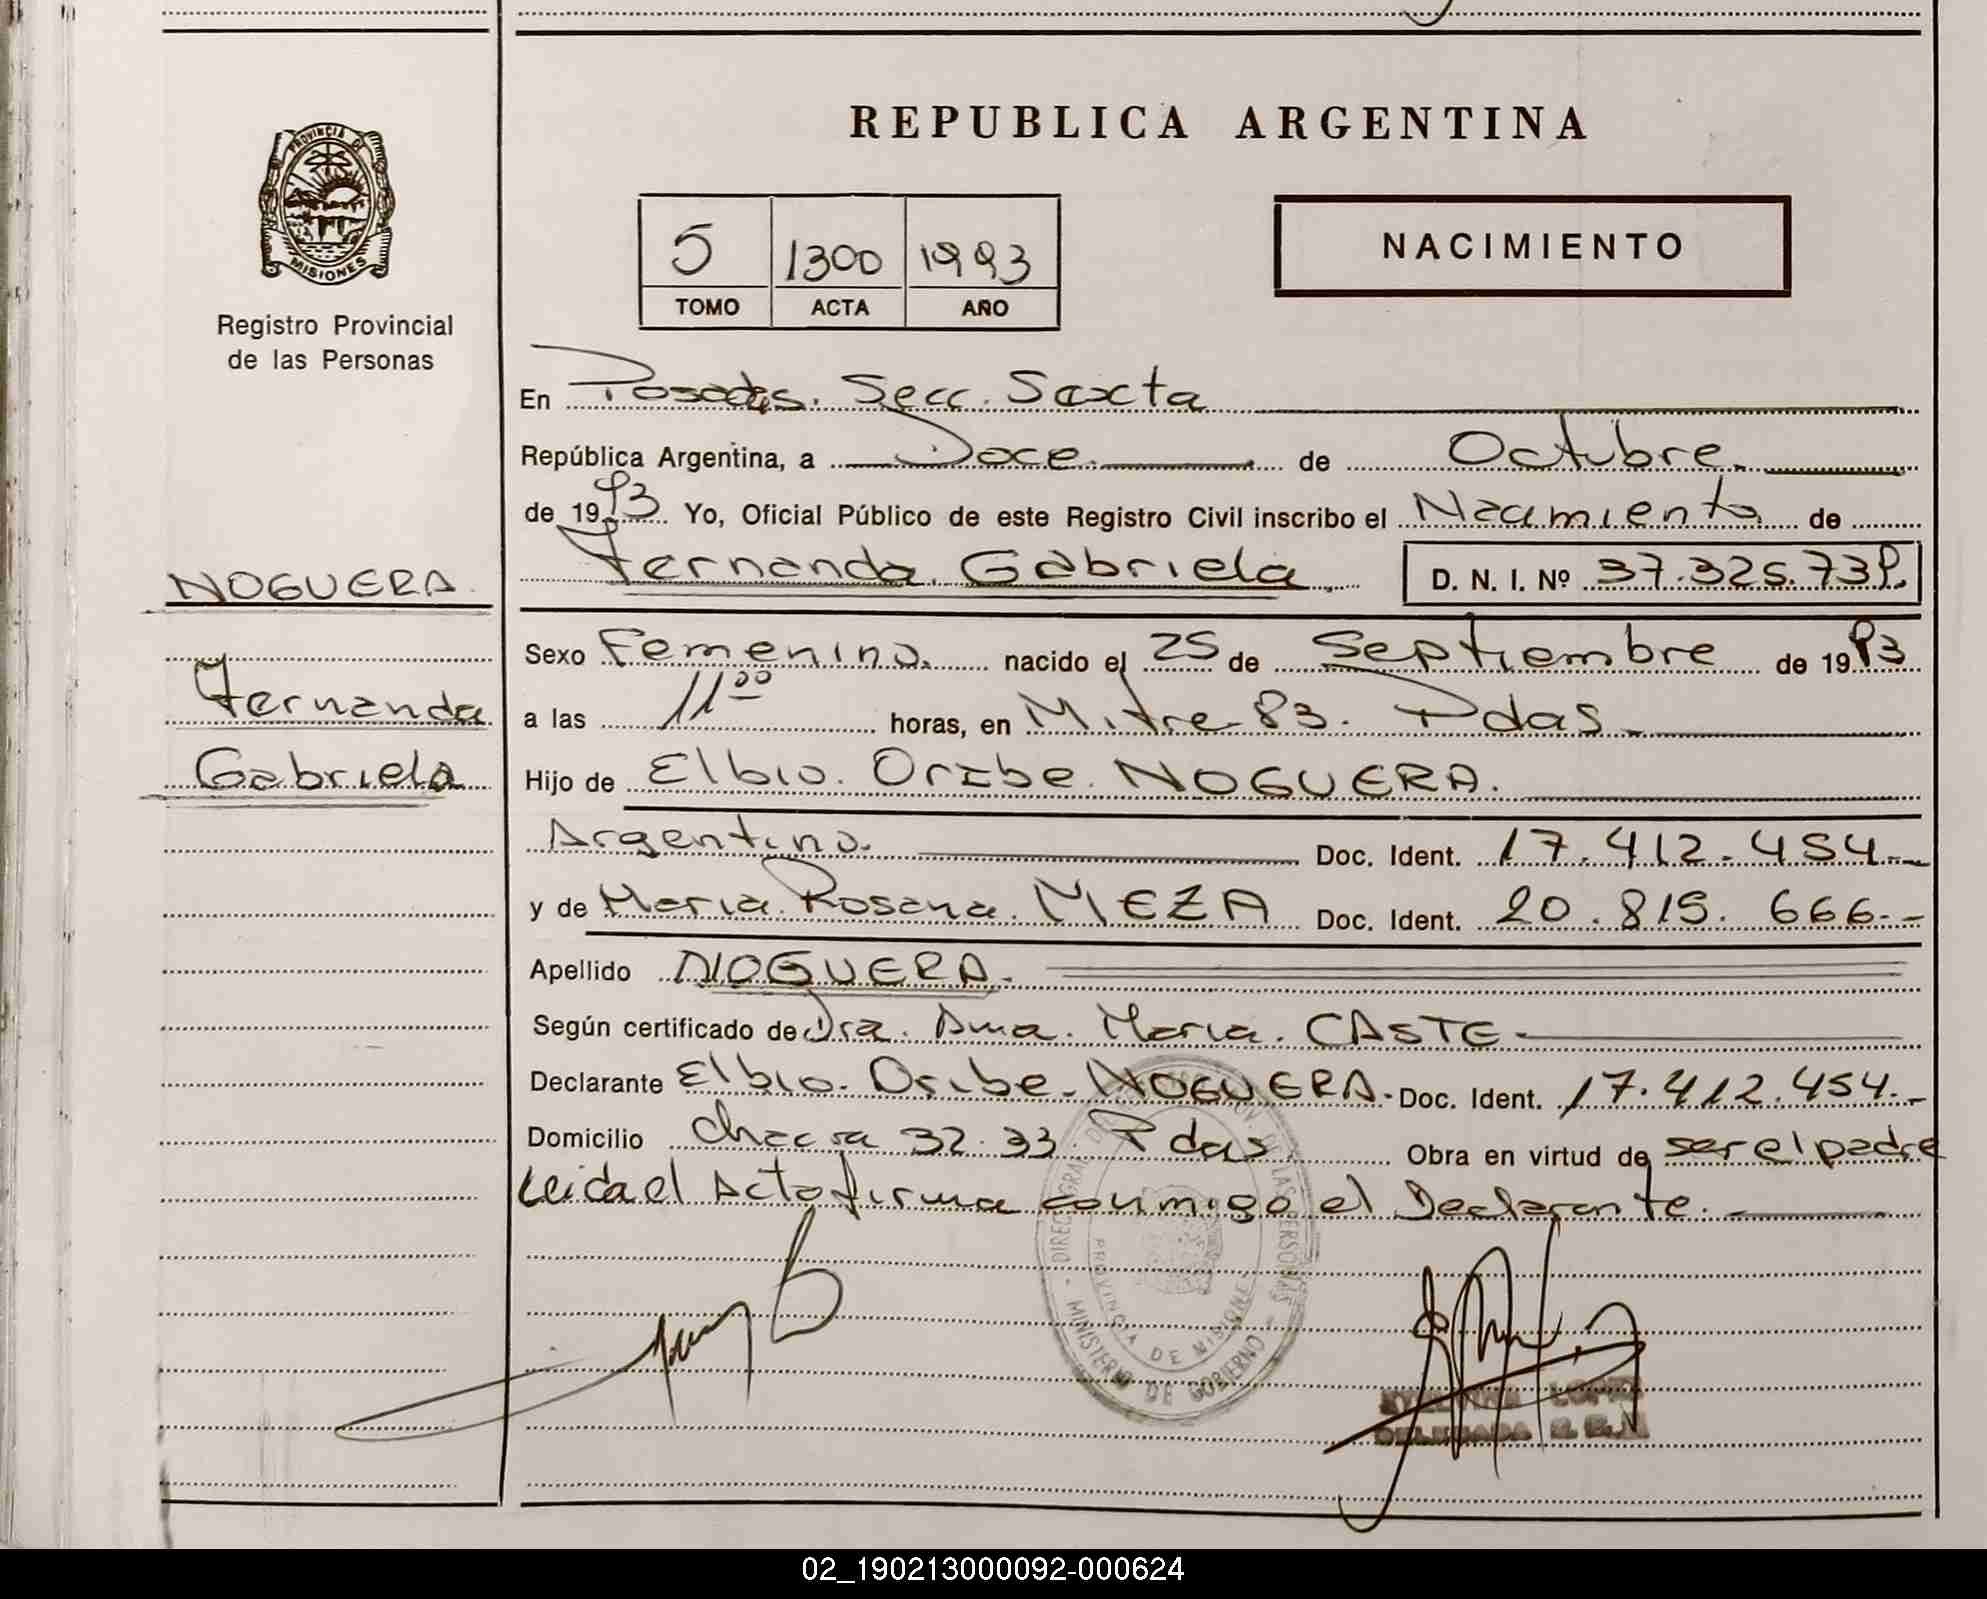 REPUBLICA ARGENTINA
PROVINCIA DE
MISIONES
Registro Provincial
de las Personas
5 1300 1993
TOMO ACTA AÑO
NACIMIENTO
En Posadas. Secc. Sexta
República Argentina, a Doce. de Octubre.
de 1993 Yo, Oficial Público de este Registro Civil inscribo el Nacimiento de
Fernanda Gabriela D. N. I. Nº 37.325.739.
NOGUERA
Fernanda
Gabriela
Sexo Femenino. nacido el 25 de Septiembre de 1993
a las 11 00 horas, en Mitre 83. Pdas.
Hijo de Elbio. Oribe. NOGUERA.
Argentino. Doc. Ident. 17.412.454.-
y de Maria. Rosana. MEZA Doc. Ident. 20.819.666.-
Apellido NOGUERA.
Según certificado de Dra. Ana. Maria. CASTE
Declarante Elbio. Oribe. NOGUERA. Doc. Ident. 17.412.454.-
Domicilio Chacra 32.33. Pdas Obra en virtud de ser el padre
Leida el Acta firma conmigo el Declarante.
DE LAS PERSONAS
PROVINCIA DE MISIONES
MINISTERIO DE GOBIERNO
LOPEZ
DELEGADA
02_190213000092-000624